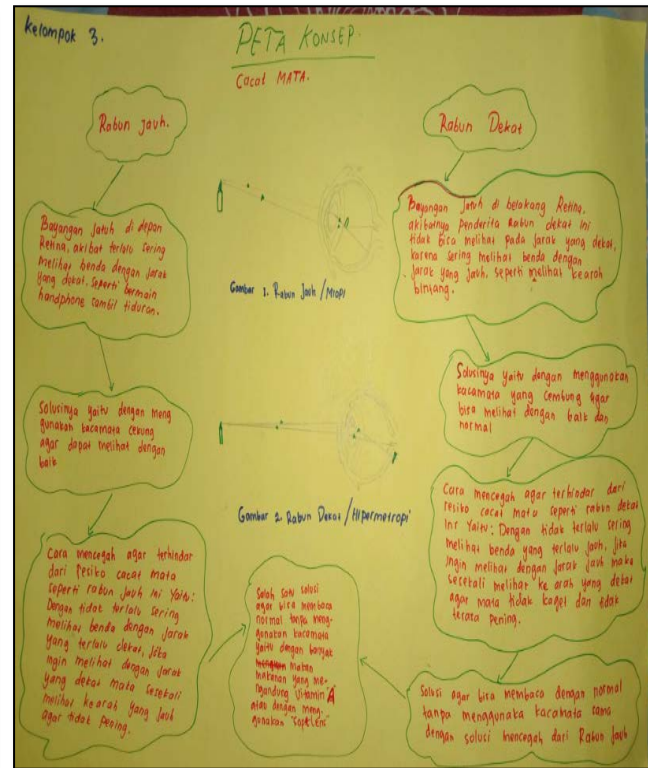 Kelompok 3.
PETA KONSEP.
Cacat MATA.
Rabun Jauh.
Bayangan Jatuh di depan
Retina, akibat terlalu sering
melihat benda dengan jarak
yang dekat, seperti bermain
handphone sambil tiduran.
Solusinya yaitu dengan meng
gunakan kacamata cekung
agar dapat melihat dengan
baik
Cara mencegah agar terhindar
dari resiko cacat mata
seperti rabun jauh ini Yaitu:
Dengan tidak terlalu sering
melihat benda dengan jarak
yang terlalu dekat, jika
ingin melihat dengan jarak
yang dekat maka sesekali
melihat kearah yang jauh
agar tidak pening.
Gambar 1. Rabun Jauh / Miopi
Gambar 2. Rabun Dekat / Hipermetropi
Salah satu solusi
agar bisa membaca
normal tanpa meng-
gunakan kacamata
yaitu dengan banyak
makan
makanan yang me-
ngandung "Vitamin A
atau dengan meng-
gunakan "sopelens"
Rabun Dekat
Bayangan Jatuh di belakang Retina,
akibatnya penderita Rabun dekat ini
tidak bisa melihat pada jarak yang dekat,
karena sering melihat benda dengan
jarak yang jauh, seperti melihat kearah
bintang.
Solusinya yaitu dengan menggunakan
kacamata yang cembung agar
bisa melihat dengan baik dan
normal
Cara mencegah agar terhindar dari
resiko cacat mata seperti rabun dekat
ini Yaitu: Dengan tidak terlalu sering
melihat benda yang terlalu jauh, jika
ingin melihat dengan jarak jauh maka
sesekali melihat ke arah yang dekat
agar mata tidak kaget dan tidak
terasa pening.
Solusi agar bisa membaca dengan normal
tanpa menggunaka kacamata sama
dengan solusi mencegah dari Rabun Jauh